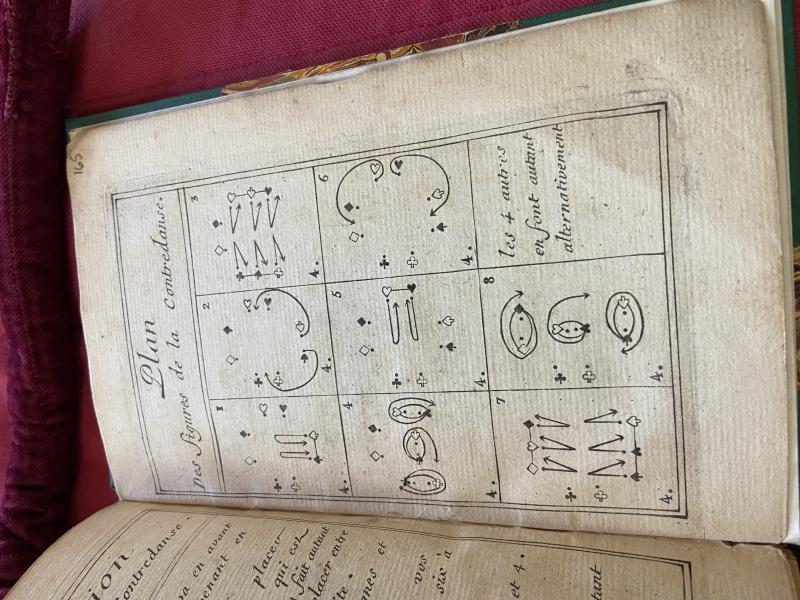 165
Plan
Des figures de la Contredanse.
1
2
3
4.
4.
4.
4
5
6
4.
4.
4.
7
8
les 4 autres
en font autant
alternativement
4.
4.
ion
contredanse.
a en avant
enant en
placer
qui est
fait autant
placer entre
ite.
nes et
vos
six à
et 4.
tant